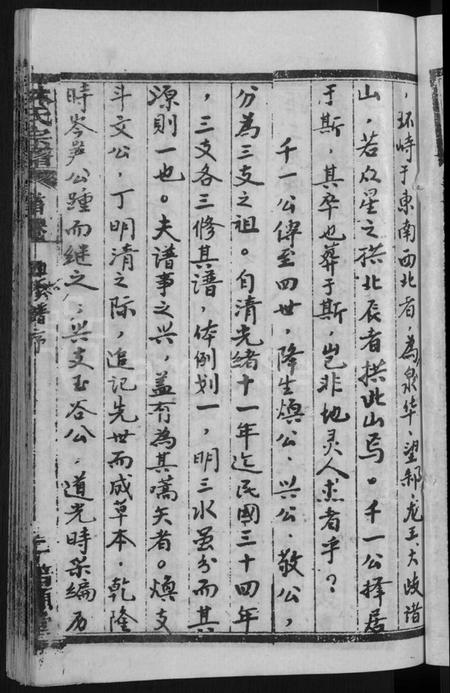 ，环峙于東南西北者，為泉华、望郝、龙王大岐諸
山，若众星之拱北辰者拱此山焉。千一公择居
于斯，其卒也葬于斯，岂非地灵人杰者乎？
千一公傅至四世，降生熼公、兴公、敬公，
分為三支之祖。自清光绪十一年迄民國三十四年
，三支各三修其譜，体例划一，明三水虽分而其
源則一也。夫谱事之兴，盖有為其嚆矢者。熼支
斗文公，丁明清之际，追记先世而成草本，乾隆
時岑夢公踵而继之；兴支玉谷公，道光時采编历
林氏宗譜
首卷
五修譜序